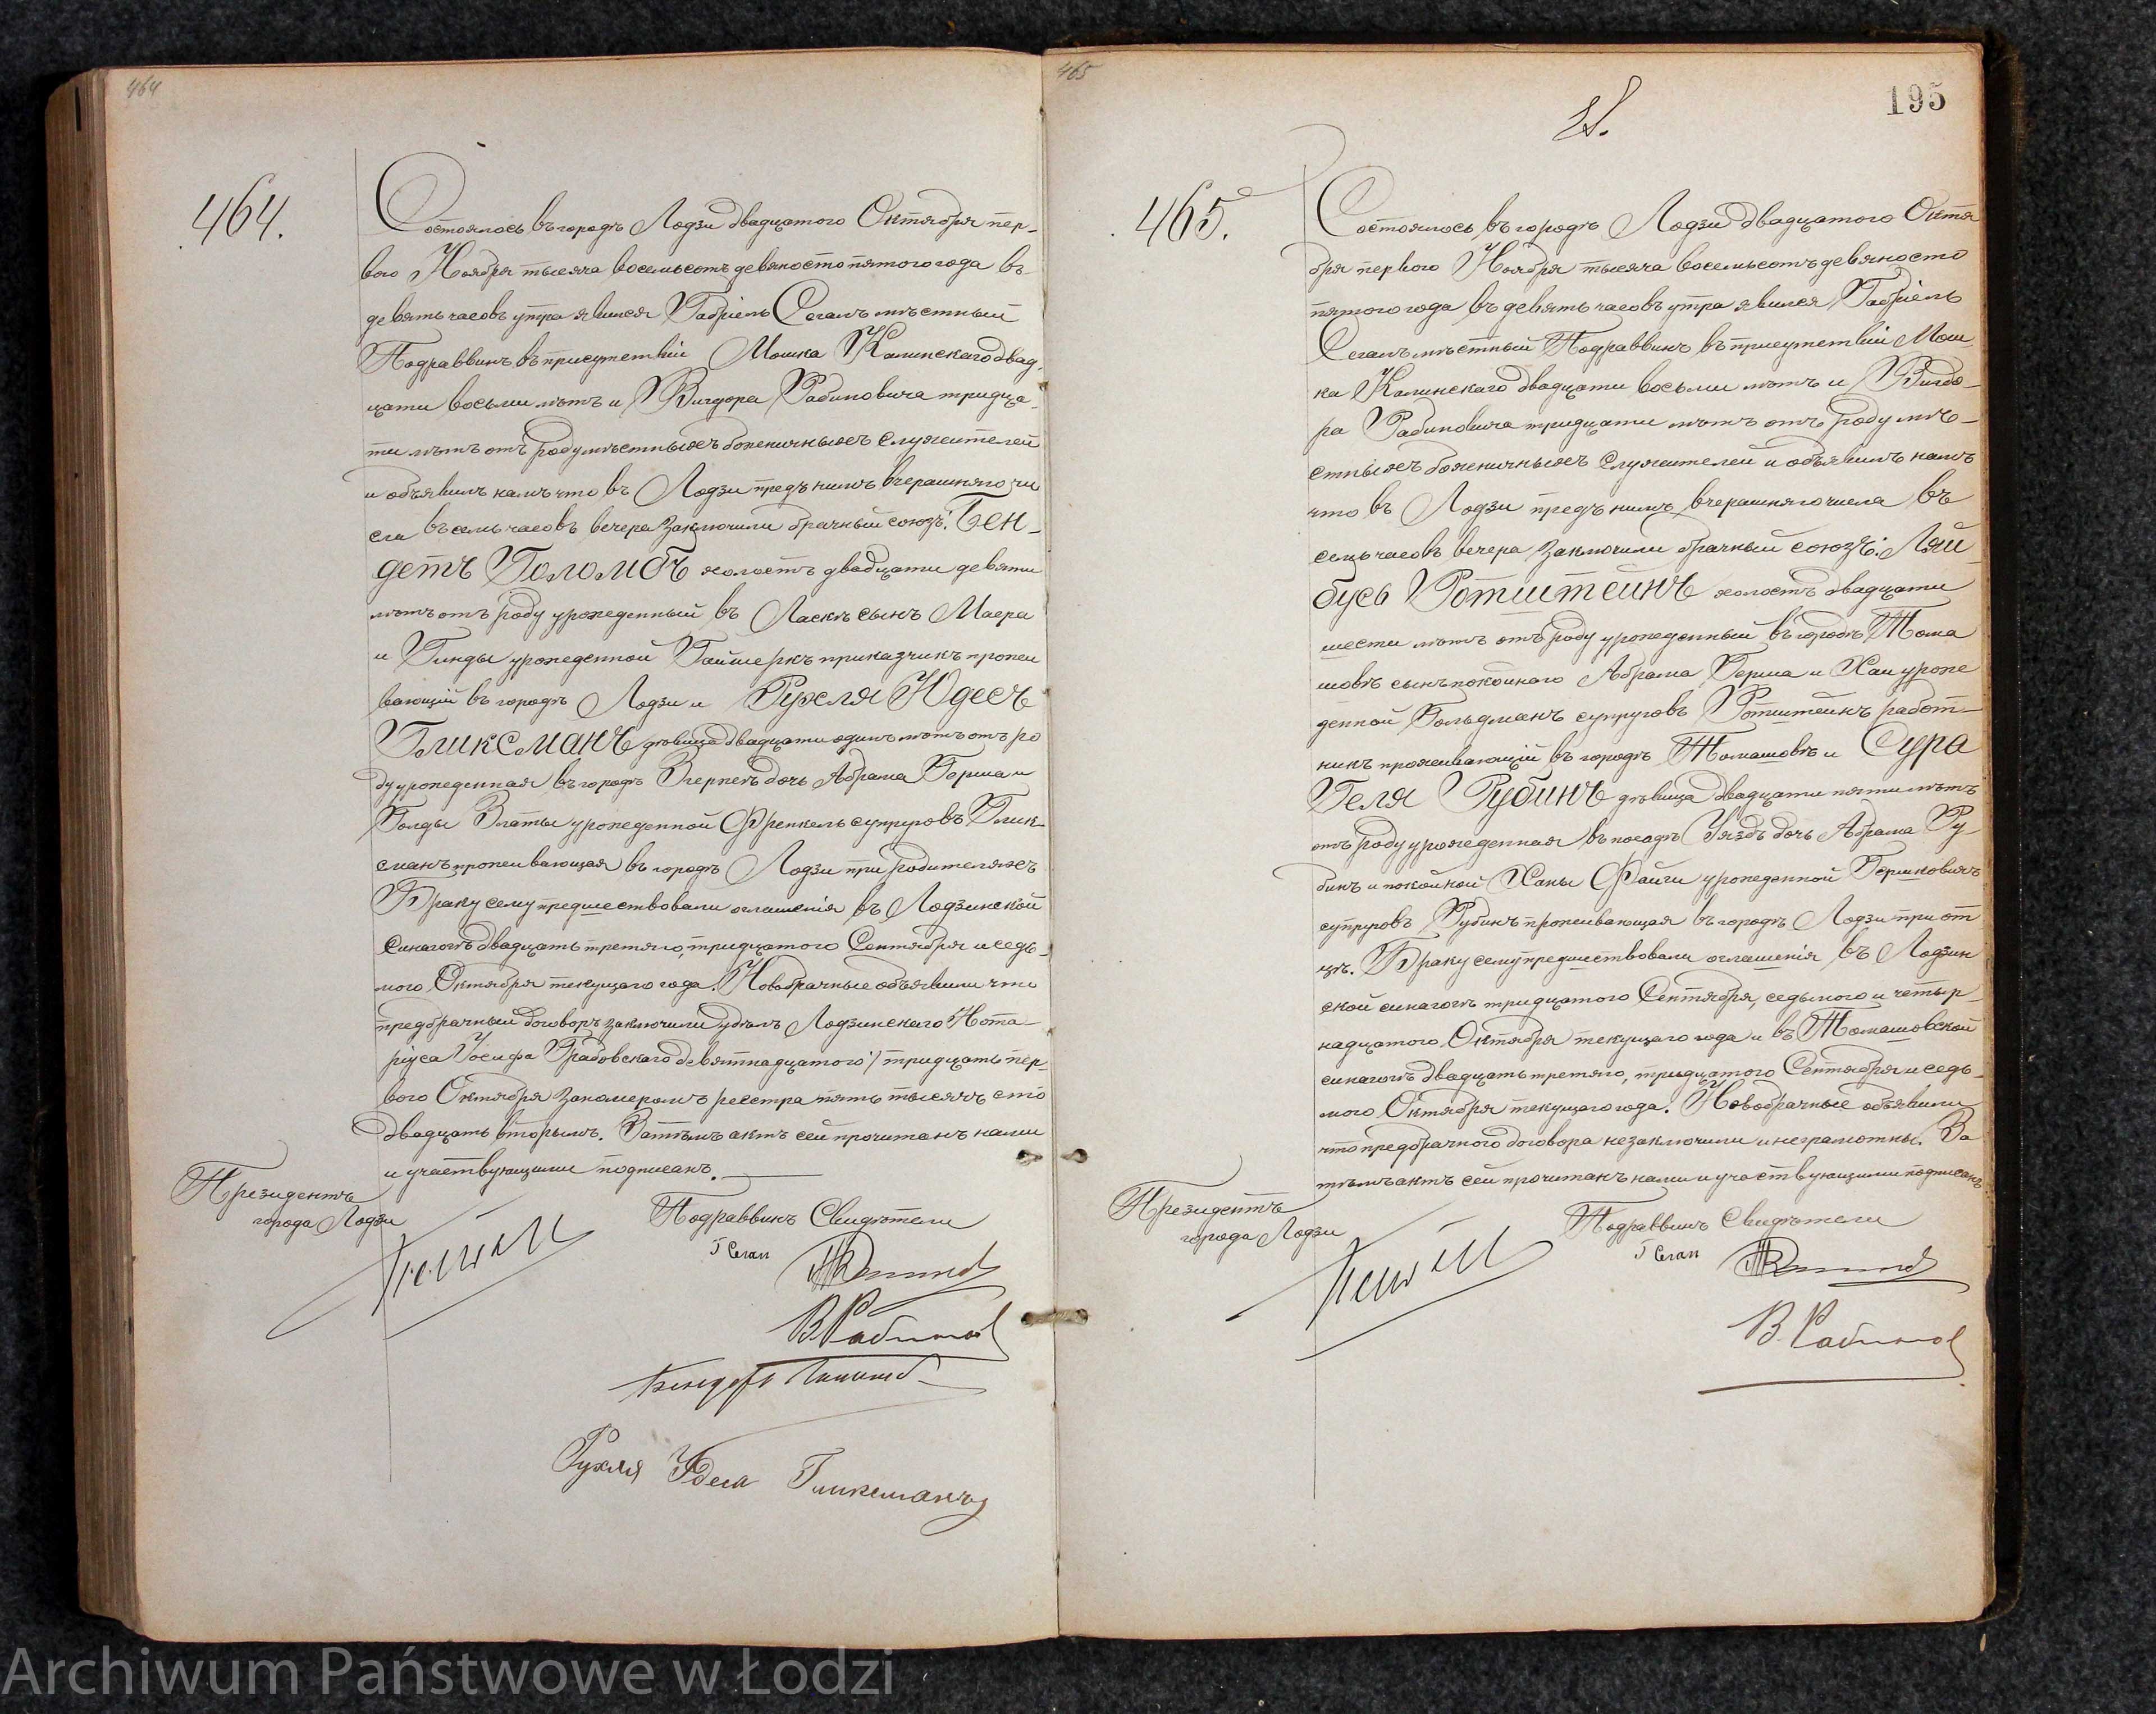 464
464.
Состоялось въ городѣ Лодзи двадцатого Октября пер-
вого Ноября тысяча восемьсотъ девяносто пятого года въ
девять часовъ утра явился Габріель Сегалъ мѣстный
Подраввинъ въ присутствіи Мошка Калинскаго двад-
цати восьми лѣтъ и Вигдора Рабиновича тридца-
ти лѣтъ отъ роду мѣстныхъ божничныхъ служителей
и объявилъ намъ что въ Лодзи предъ нимъ вчерашняго чи
сла въ семь часовъ вечера заключили брачный союзъ: Бен-
детъ Голомбъ холостъ двадцати девяти
лѣтъ отъ роду урожденный въ Ласкѣ сынъ Маера
и Гинды урожденной приказчикъ прожи
вающій въ городѣ Лодзи и Рухля Юдесъ
Гликсманъ дѣвица двадцати одинъ лѣтъ отъ ро
ду урожденная въ городѣ Згержѣ дочь Абрама Герша и
Голды Златы урожденной Френкель супруговъ Глик-
сманъ проживающая въ городѣ Лодзи при родителяхъ
Браку сему предшествовали оглашенія въ Лодзинской
синагогѣ двадцать третяго, тридцатого Сентября и седь-
мого Октября текущаго года. Новобрачные объявили что
предбрачный договоръ заключили у Лодзинскаго Нота-
ріуса Іосифа Грабовскаго девятнадцатого / тридцать пер-
вого Октября за номеромъ реестра пять тысячъ сто
двадцать вторымъ. Затѣмъ актъ сей прочитанъ нами
и участвующими подписанъ.
Президентъ
города Лодзи
Подраввинъ Свидѣтели
Г Сегал
В. Рабинов
Бендетъ Голомб
Рухля Юдеса Гликсманъ
465
195
465.
Состоялось въ городѣ Лодзи двадцатого Октя
бря первого Ноября тысяча восемьсотъ девяносто
пятого года въ девять часовъ утра явился Габріель
Сегалъ мѣстный Подраввинъ въ присутствіи Мош-
ка Калинскаго двадцати восьми лѣтъ и Вигдо-
ра Рабиновича тридцати лѣтъ отъ роду мѣ-
стныхъ божничныхъ служителей и объявилъ намъ
что въ Лодзи предъ нимъ вчерашняго числа въ
семь часовъ вечера заключили брачный союзъ: Лай
бусь Ротштейнъ холостъ двадцати
шести лѣтъ отъ роду урожденный въ городѣ Тома
шовѣ сынъ покойнаго Абрама Герша и Хаи урож
денной Гольдманъ супруговъ Ротштейнъ работ-
никъ проживающій въ городѣ Томашовѣ и Сура
Геля Рубинъ дѣвица двадцати пяти лѣтъ
отъ роду урожденная въ посадѣ Уяздъ дочь Абрама Ру-
бинъ и покойной Ханы Файги урожденной Гершковичъ
супруговъ Рубинъ проживающая въ городѣ Лодзи при от
цѣ. Браку сему предшествовали оглашенія въ Лодзин
ской синагогѣ тридцатого Сентября, седьмого и четыр-
надцатого Октября текущаго года и въ Томашовской
синагогѣ двадцать третяго, тридцатого Сентября и седь-
мого Октября текущаго года. Новобрачные объявили
что предбрачного договора незаключили и неграмотны. За
тѣмъ актъ сей прочитанъ нами и участвующими подписанъ
Президентъ
города Лодзи
Подраввинъ Свидѣтели
Г Сегал
В. Рабинов
Archiwum Państwowe w Łodzi